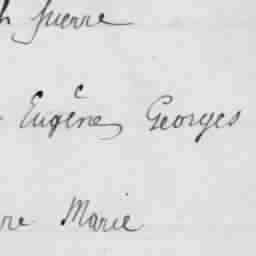 h Pierre
Eugène Georges
re Marie